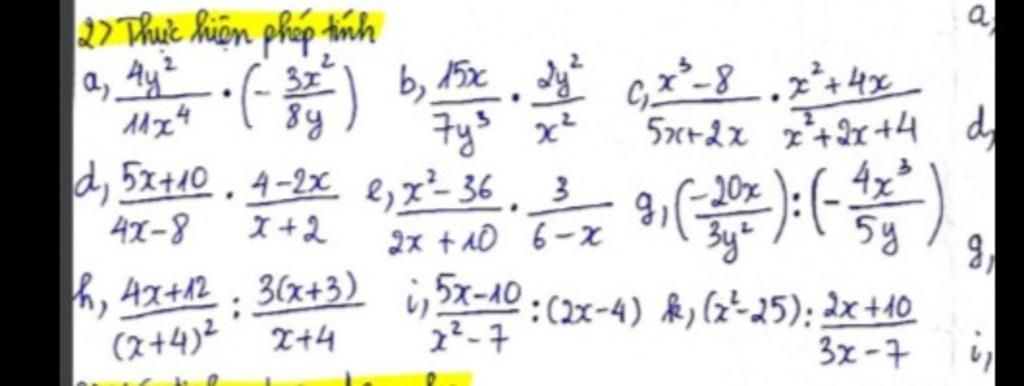 2) Thực hiện phép tính
a, 4y²/11x⁴ · (- 3x²/8y) b, 15x/7y³ · 2y²/x² c, x³-8/5x+2x · x²+4x/x²+2x+4
d, 5x+10/4x-8 · 4-2x/x+2 e, x²-36/2x+10 · 3/6-x g, (-20x/3y²):(- 4x³/5y)
h, 4x+12/(x+4)² : 3(x+3)/x+4 i, 5x-10/x²-7 :(2x-4) k, (x²-25): 2x+10/3x-7
a,
d,
g,
i,